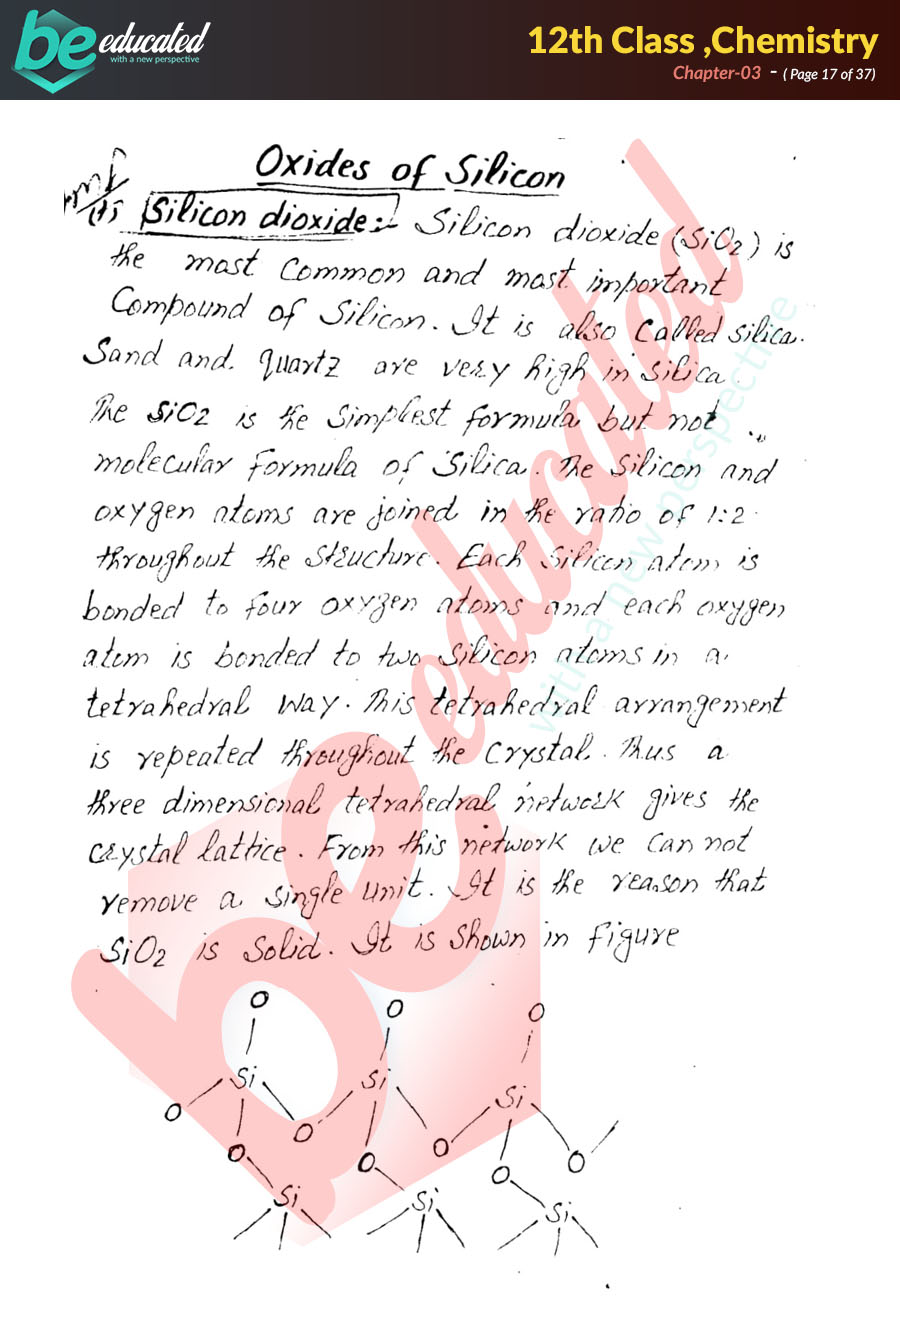 be educated
with a new perspective
12th Class ,Chemistry
Chapter-03 - ( Page 17 of 37)
Oxides of Silicon
Silicon dioxide:- Silicon dioxide (SiO2) is
the most Common and most important
Compound of Silicon. It is also Called silica.
Sand and quartz are very high in silica.
The SiO2 is the Simplest formula but not
molecular formula of Silica. The Silicon and
oxygen atoms are joined in the ratio of 1:2
throughout the structure. Each Silicon atom is
bonded to four oxygen atoms and each oxygen
atom is bonded to two Silicon atoms in a
tetrahedral way. This tetrahedral arrangement
is repeated throughout the Crystal. Thus a
three dimensional tetrahedral network gives the
crystal lattice. From this network we Can not
remove a single unit. It is the reason that
SiO2 is Solid. It is Shown in figure
O O O
Si Si Si
O O O O
O O O
Si Si Si
be educated
with a new perspective